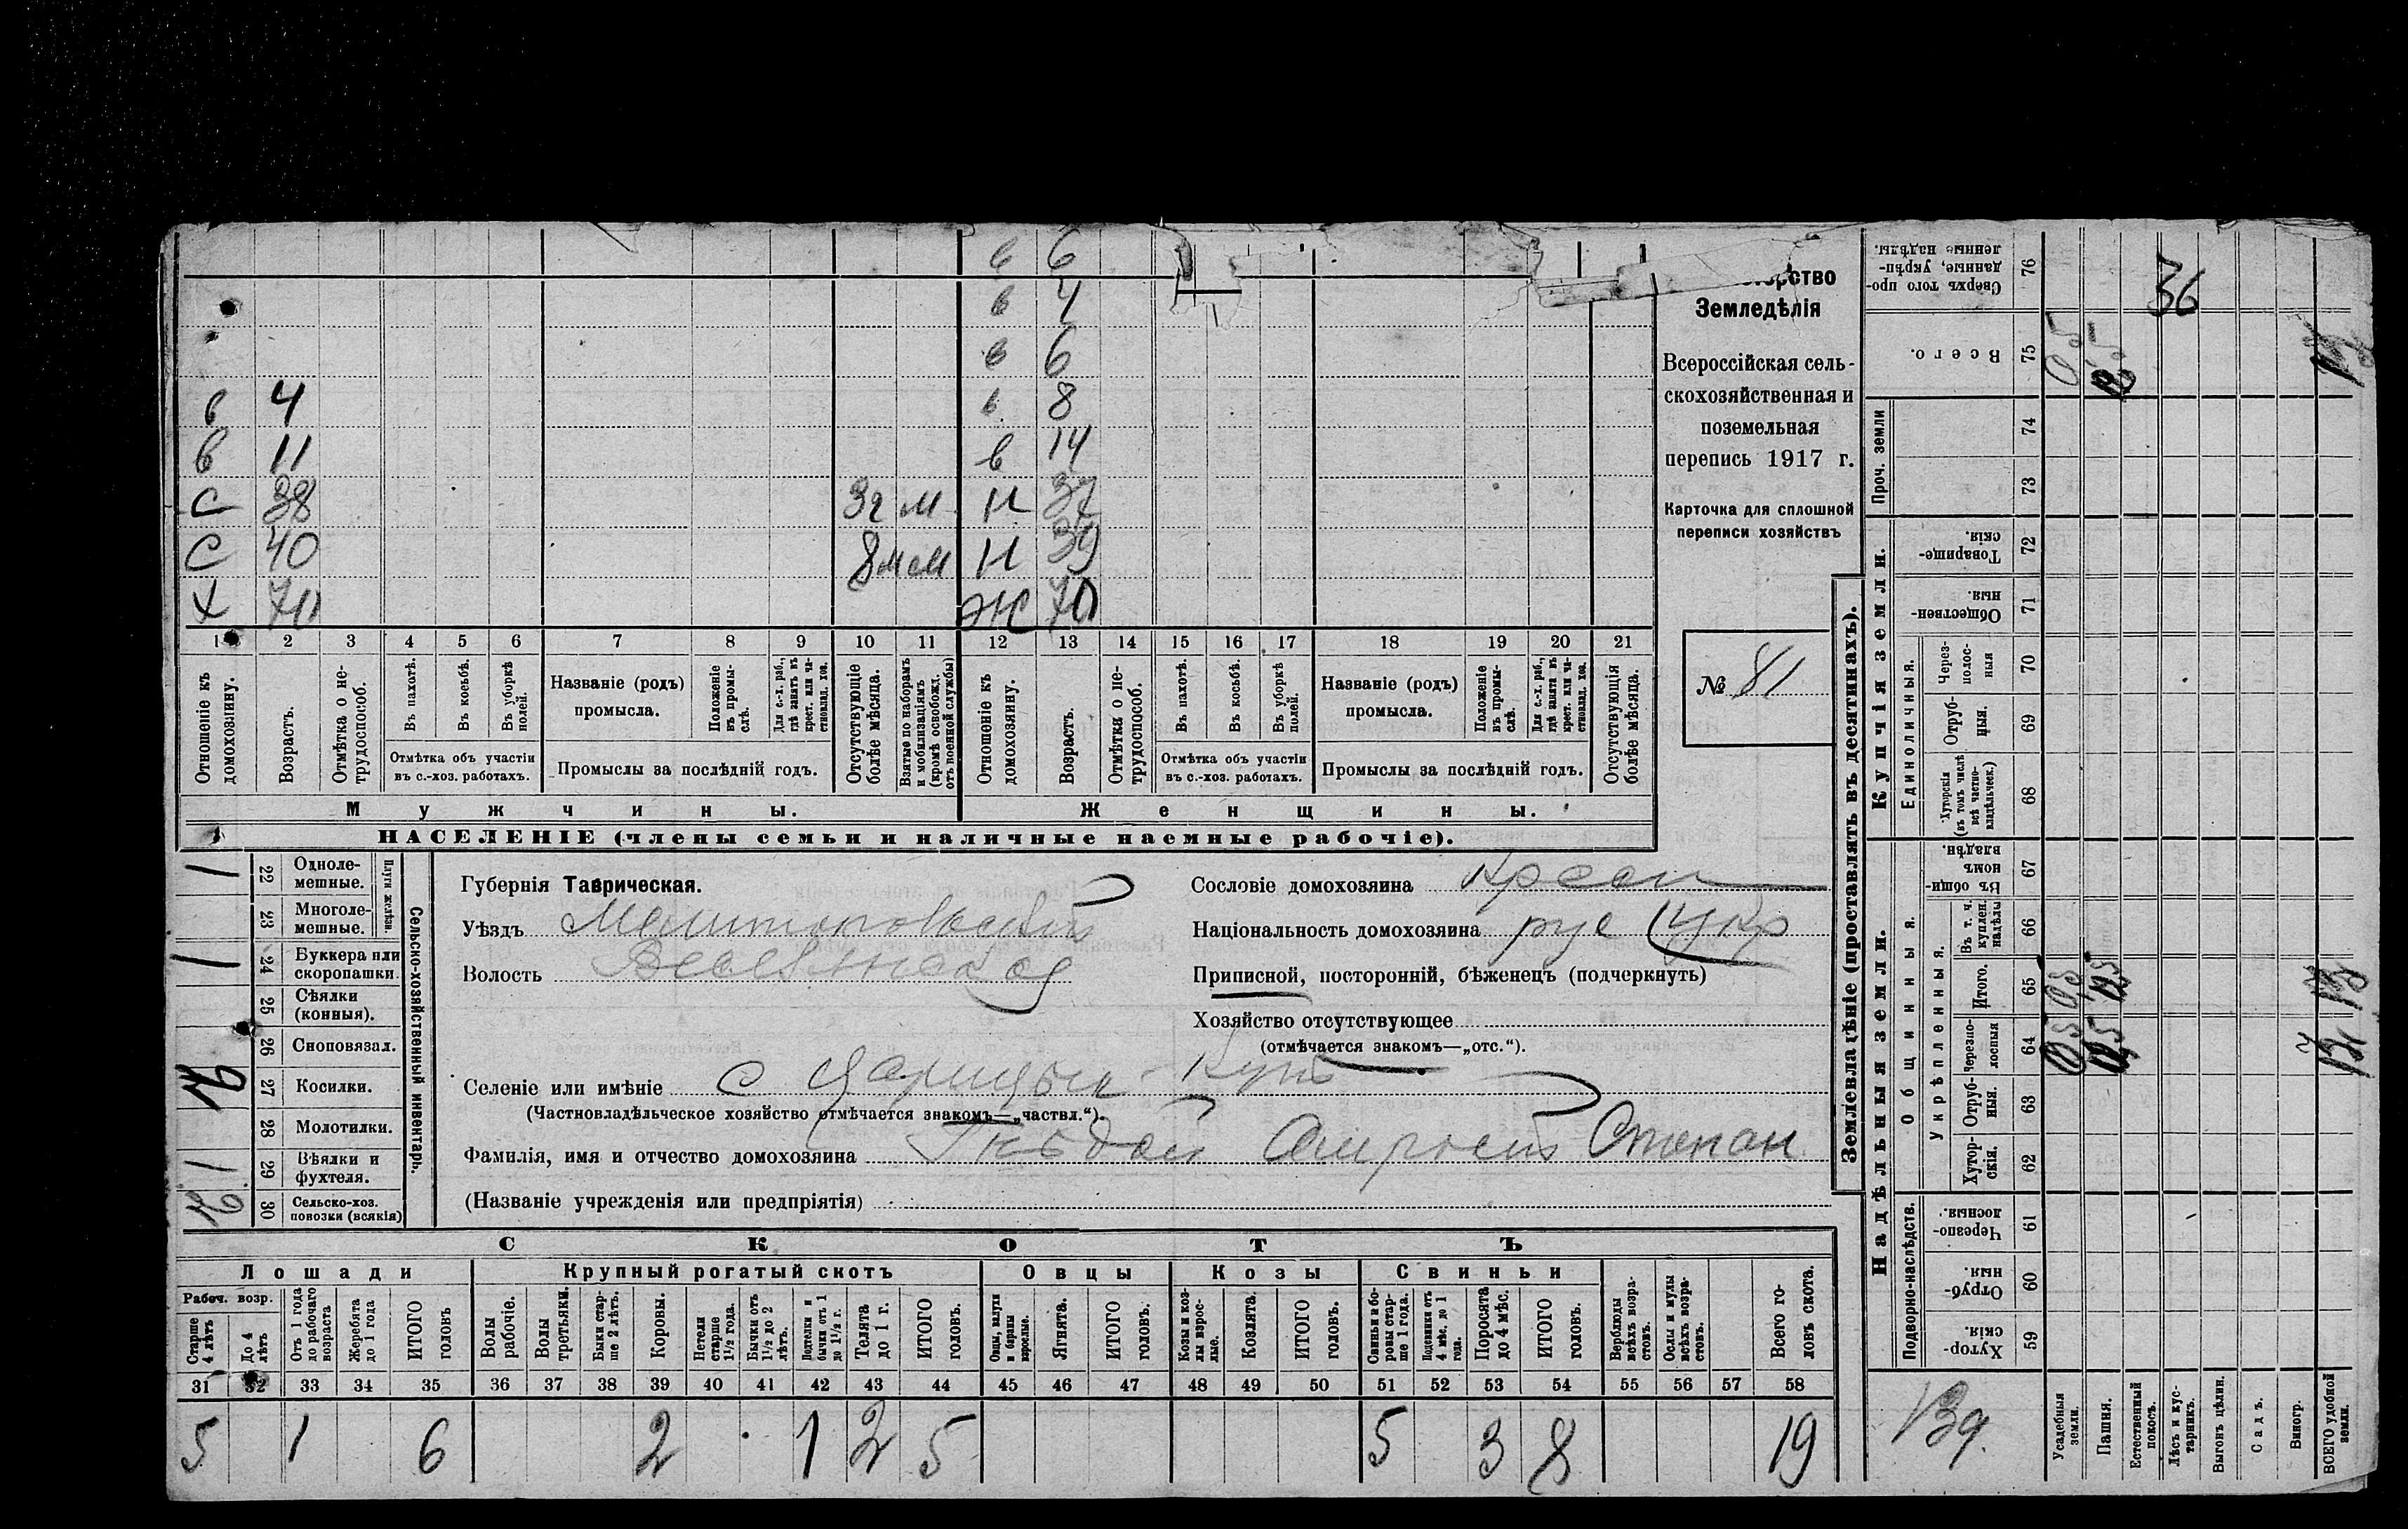 в 6
в 4
в 6
в 4 в 8
в 11 в 14
С 38 3г м Н 37
С 40 8м м Н 39
Х 70 Ж 70
1 2 3 4 5 6 7 8 9 10 11 12 13 14 15 16 17 18 19 20 21
Отношеніе къ домохозяину.
Возрастъ.
Отмѣтка о не-трудоспособ.
Въ пахотѣ.
Въ косьбѣ.
Въ уборкѣ полей.
Отмѣтка объ участіи
въ с.-хоз. работахъ.
Названіе (родъ)
промысла.
Положеніе въ промы-слѣ.
Для с.-х. раб., гдѣ занятъ въ крест. или ча-стновлад. хоз.
Промыслы за послѣдній годъ.
Отсутствующіе болѣе мѣсяца.
Взятые по наборамъ и мобилизаціямъ (кромѣ освобожд. отъ военной службы)
Отношеніе къ домохозяину.
Возрастъ.
Отмѣтка о не-трудоспособ.
Въ пахотѣ.
Въ косьбѣ.
Въ уборкѣ полей.
Отмѣтка объ участіи
въ с.-хоз. работахъ.
Названіе (родъ)
промысла.
Положеніе въ промы-слѣ.
Для с.-х. раб., гдѣ занята въ крест. или ча-стновлад. хоз.
Промыслы за послѣдній годъ.
Отсутствующія болѣе мѣсяца.
Мужчины. Женщины.
НАСЕЛЕНІЕ (члены семьи и наличные наемные рабочіе).
Земледѣлія
Всероссійская сель-
скохозяйственная и
поземельная
перепись 1917 г.
Карточка для сплошной
переписи хозяйствъ
№ 81
Сельско-хозяйственный инвентарь.
Плуги желѣзн.
1 22 Одноле-мешные.
23 Многоле-мешные.
1 24 Буккера или скоропашки.
25 Сѣялки (конныя).
26 Сноповязал.
27 Косилки.
28 Молотилки.
1 29 Вѣялки и фухтеля.
30 Сельско-хоз. повозки (всякія)
Губернія Таврическая.
Уѣздъ Мелитопольскій
Волость Веселянская
Сословіе домохозяина Кресть
Національность домохозяина рус (укр
Приписной, посторонній, бѣженецъ (подчеркнуть)
Хозяйство отсутствующее
(отмѣчается знакомъ—„отс.“).
Селеніе или имѣніе с Царицын - Кутъ
(Частновладѣльческое хозяйство отмѣчается знакомъ—„частвл.“).
Фамилія, имя и отчество домохозяина Степан
(Названіе учрежденія или предпріятія)
СКОТЪ
Лошади Крупный рогатый скотъ Овцы Козы Свиньи
Рабоч. возр.
Старше 4 лѣтъ
До 4 лѣтъ
Отъ 1 года до рабочаго возраста
Жеребята до 1 года
ИТОГО головъ
Волы рабочіе.
Волы третьяки.
Быки стар-ше 2 лѣтъ.
Коровы.
Нетели старше 1½ года.
Бычки отъ 1½ до 2 лѣтъ.
Подтелки и бычки отъ 1 до 1½ г.
Телята до 1 г.
ИТОГО головъ.
Овцы, валухи и бараны взрослые.
Ягнята.
ИТОГО головъ.
Козы и коз-лы взрос-лые.
Козлята.
ИТОГО головъ.
Свиньи и бо-ровы стар-ше 1 года.
Подсвинки отъ 4 мѣс. до 1 года.
Поросята до 4 мѣс.
ИТОГО головъ.
Верблюды всѣхъ возра-стовъ.
Ослы и мулы всѣхъ возра-стовъ.
Всего го-ловъ скота.
31 32 33 34 35 36 37 38 39 40 41 42 43 44 45 46 47 48 49 50 51 52 53 54 55 56 57 58
5 1 6 2 1 2 5 5 3 8 19
Землевладѣніе (проставлять въ десятинахъ).
Сверхъ того про-данные, укрѣп-ленные надѣлы. 76 36
Всего. 75
Проч. земли 74
73
Купчія земли.
Товарище-скія. 72
Обществен-ныя. 71
Единоличныя.
Через-полос-ныя 70
Отруб-ныя. 69
Хуторскія (въ томъ числѣ всѣ частно-владѣльческ.) 68
Надѣльныя земли.
Общинныя.
Въ общи-номъ владѣн. 67
Укрѣпленныя.
Въ т. ч. куплен. надѣлы 66
Итого. 65
Черезпо-лосныя 64
Отруб-ныя. 63
Хутор-скія. 62
Подворно-наслѣдств.
Черезпо-лосныя. 61
Отруб-ныя. 60
Хутор-скія. 59
Усадебныя земли.
Пашня.
Естественный покосъ.
Лѣсъ и кус-тарникъ.
Выгонъ цѣлин.
Садъ.
Виногр.
ВСЕГО удобной земли.